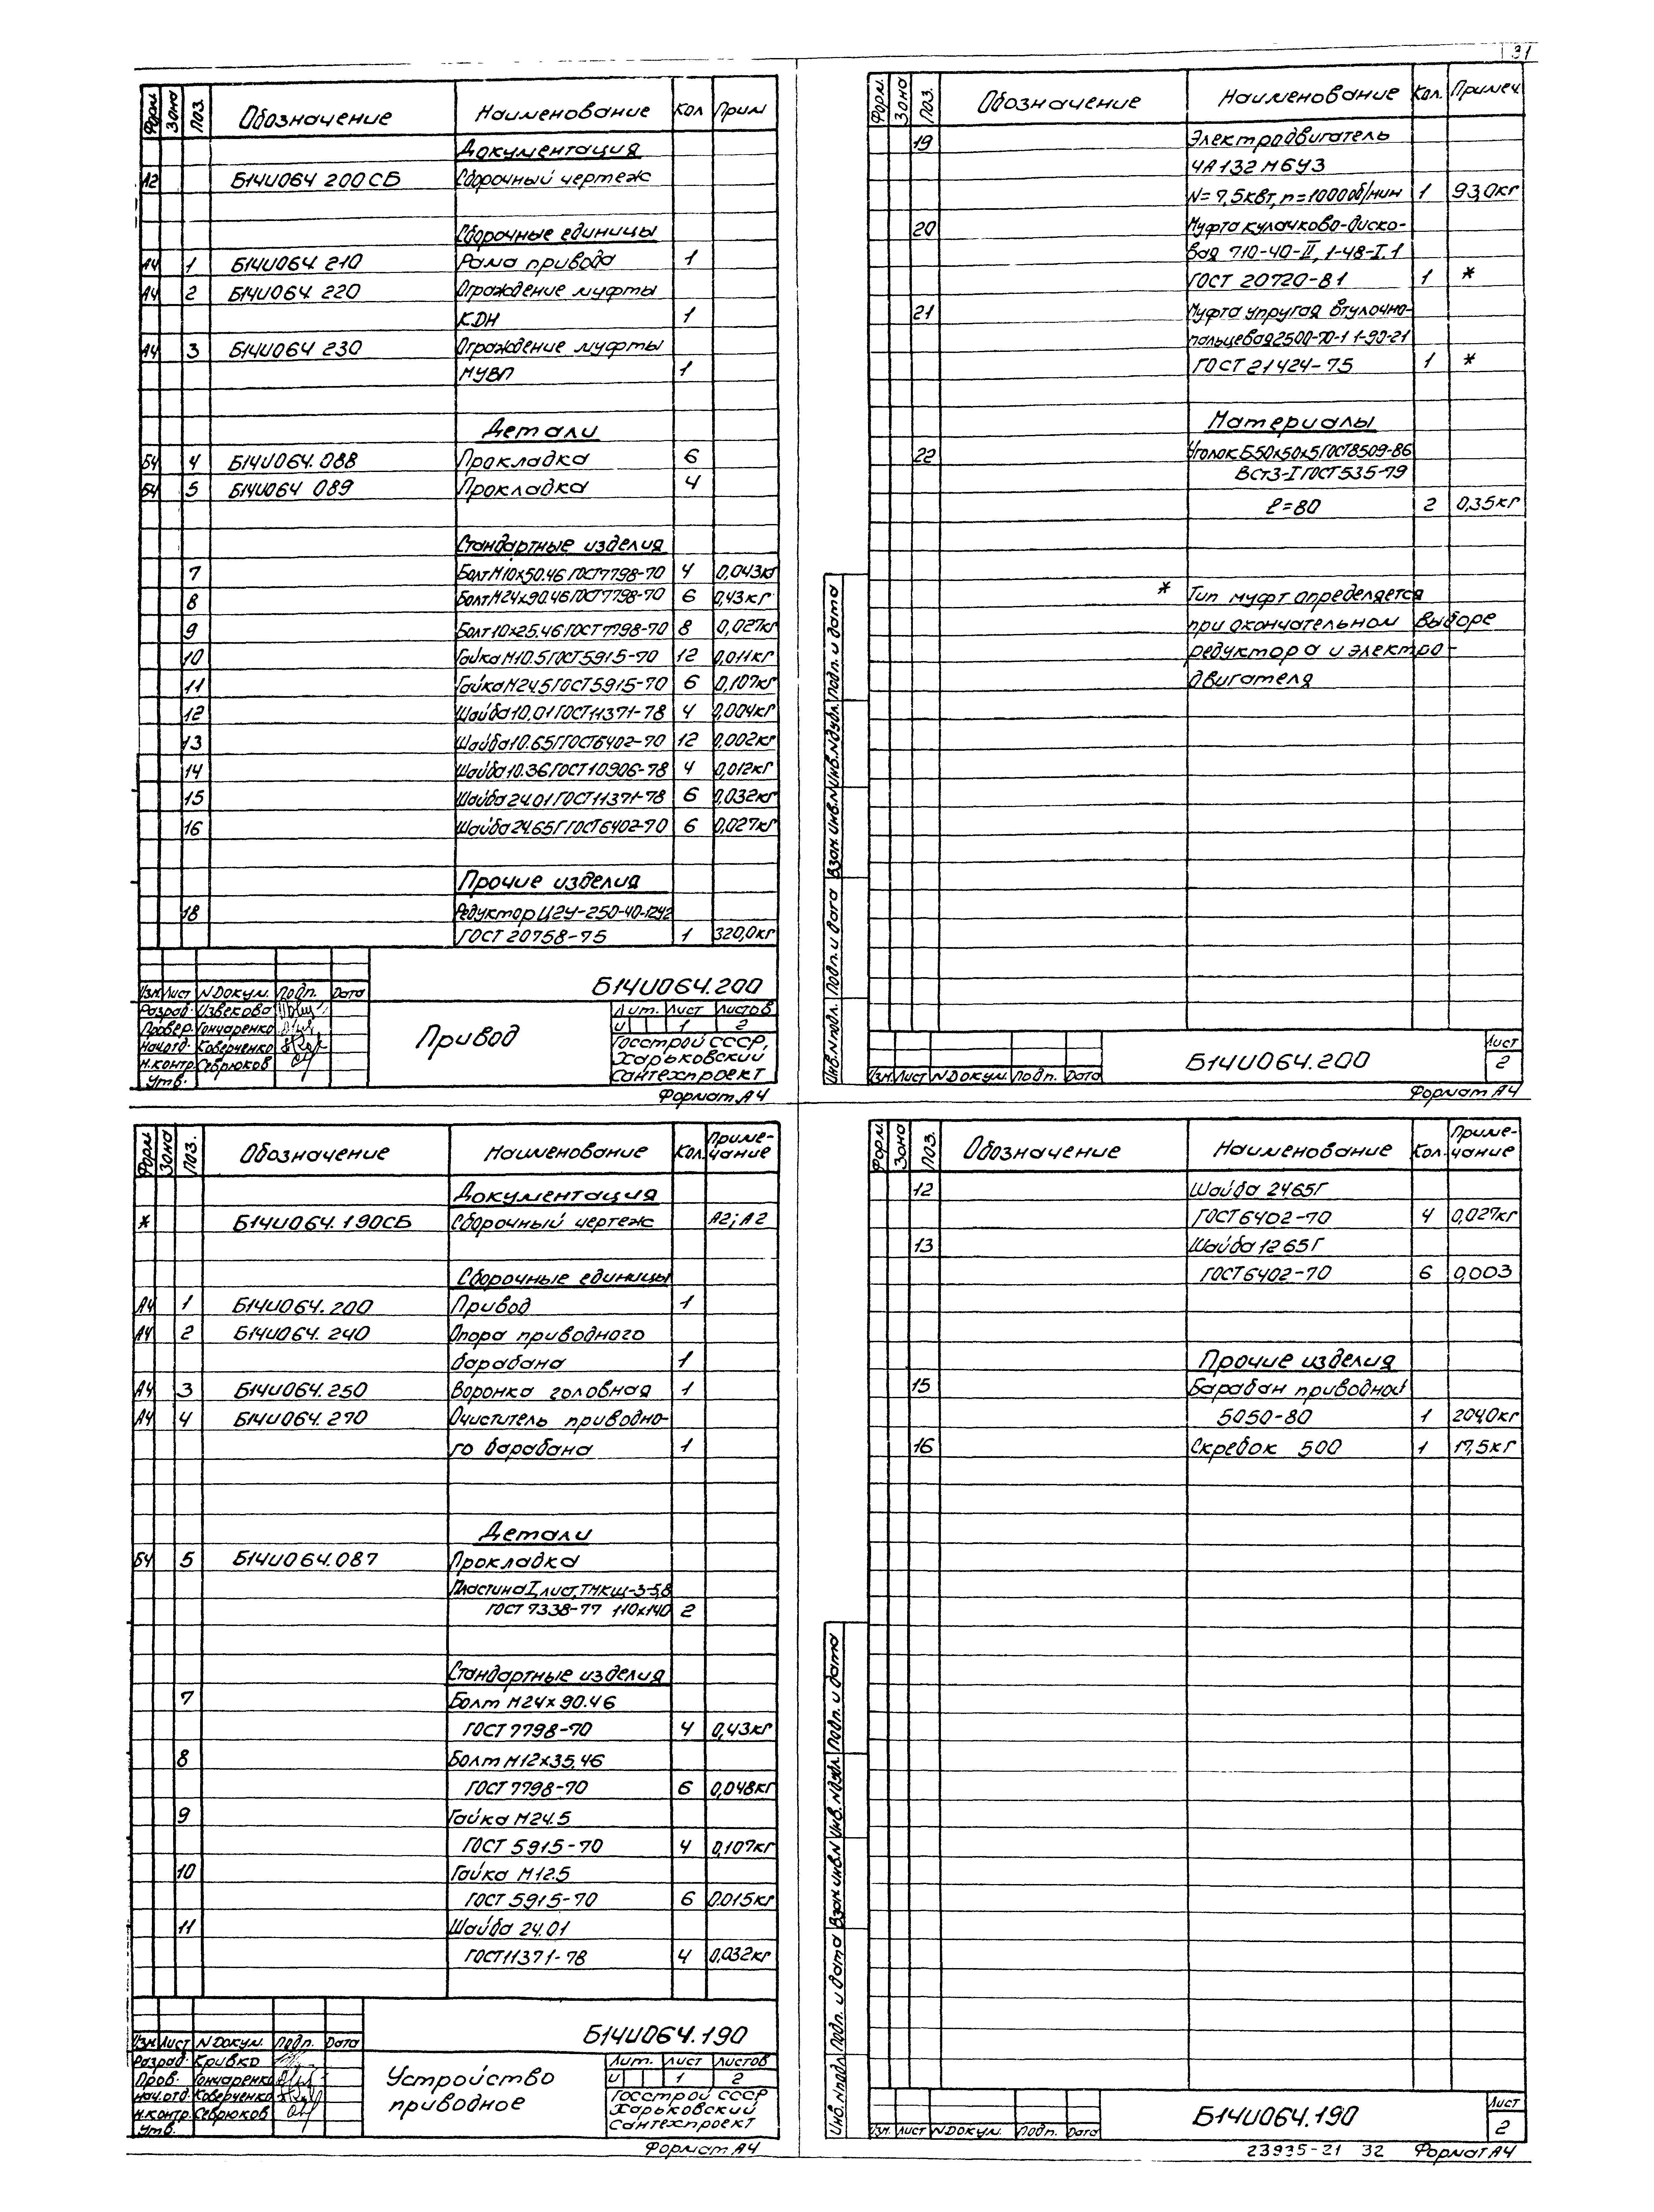 31
Форм. Зона Поз. Обозначение Наименование Кол Прим
Документация
А2 Б14И064 200СБ Сборочный чертеж
Сборочные единицы
А4 1 Б14И064.210 Рама привода 1
А4 2 Б14И064.220 Ограждение муфты
КДН 1
А4 3 Б14И064 230 Ограждение муфты
МУВП 1
Детали
БЧ 4 Б14И064.088 Прокладка 6
БЧ 5 Б14И064 089 Прокладка 4
Стандартные изделия
7 Болт М10х50.46 ГОСТ7798-70 4 0,043кг
8 Болт М24х90.46 ГОСТ7798-70 6 0,43кг
9 Болт 10х25.46 ГОСТ 7798-70 8 0,027кг
10 Гайка М10.5 ГОСТ5915-70 12 0,011кг
11 Гайка М24.5 ГОСТ5915-70 6 0,107кг
12 Шайба 10.01 ГОСТ11371-78 4 0,004кг
13 Шайба 10.65Г ГОСТ6402-70 12 0,002кг
14 Шайба 10.36 ГОСТ10906-78 4 0,012кг
15 Шайба 24.01 ГОСТ11371-78 6 0,032кг
16 Шайба 24.65Г ГОСТ6402-70 6 0,027кг
Прочие изделия
18 Редуктор Ц2У-250-40-12У2
ГОСТ 20758-75 1 320,0кг
Б14И064.200
Изм. Лист N Докум. Подп. Дата
Разраб. Извекова
Провер. Гончаренко
Нач.отд. Коверченко
Н.контр. Севрюков
Утв.
Привод
Лит. Лист Листов
И 1 2
Госстрой СССР,
Харьковский
Сантехпроект
Формат А4
Форм. Зона Поз. Обозначение Наименование Кол. Примеч
19 Электродвигатель
4А132М6У3
N=7,5квт, n=1000об/мин 1 93,0кг
20 Муфта кулачково-диско-
вая 710-40-II, 1-48-I.1
ГОСТ 20720-81 1 *
21 Муфта упругая втулочно-
пальцевая 2500-70-1 1-90-21
ГОСТ 21424-75 1 *
Материалы
22 Уголок Б50х50х5 ГОСТ8509-86
ВСт3-I ГОСТ535-79
ℓ=80 2 0,35кг
* Тип муфт определяется
при окончательном выборе
редуктора и электро-
двигателя
Инв.N подл. Подп. и дата Взам.инв.N Инв.N дубл. Подп. и дата
Изм. Лист N Докум. Подп. Дата
Б14И064.200
Лист
2
Формат А4
Форм. Зона Поз. Обозначение Наименование Кол. Приме-
чание
Документация
* Б14И064.190СБ Сборочный чертеж А2; А2
Сборочные единицы
А4 1 Б14И064.200 Привод 1
А4 2 Б14И064.240 Опора приводного
барабана 1
А4 3 Б14И064.250 Воронка головная 1
А4 4 Б14И064.270 Очиститель приводно-
го барабана 1
Детали
БЧ 5 Б14И064.087 Прокладка
Пластина I, лист, ТМКЩ-3-5,8
ГОСТ 7338-77 110х140 2
Стандартные изделия
7 Болт М24х90.46
ГОСТ 7798-70 4 0,43кг
8 Болт М12х35.46
ГОСТ 7798-70 6 0,048кг
9 Гайка М24.5
ГОСТ 5915-70 4 0,107кг
10 Гайка М12.5
ГОСТ 5915-70 6 0.015кг
11 Шайба 24.01
ГОСТ11371-78 4 0,032кг
Б14И064.190
Изм. Лист N Докум. Подп. Дата
Разраб. Кривко
Пров. Гончаренко
Нач.отд. Коверченко
Н.контр. Севрюков
Утв.
Устройство
приводное
Лит. Лист Листов
И 1 2
Госстрой СССР
Харьковский
Сантехпроект
Формат А4
Форм. Зона Поз. Обозначение Наименование Кол. Приме-
чание
12 Шайба 24 65Г
ГОСТ6402-70 4 0,027кг
13 Шайба 12 65Г
ГОСТ6402-70 6 0,003
Прочие изделия
15 Барабан приводной
5050-80 1 204,0кг
16 Скребок 500 1 17,5кг
Инв.N подл. Подп. и дата Взам.инв.N Инв.N дубл. Подп. и дата
Изм. Лист N Докум. Подп. Дата
Б14И064.190
Лист
2
23935-21 32 Формат А4